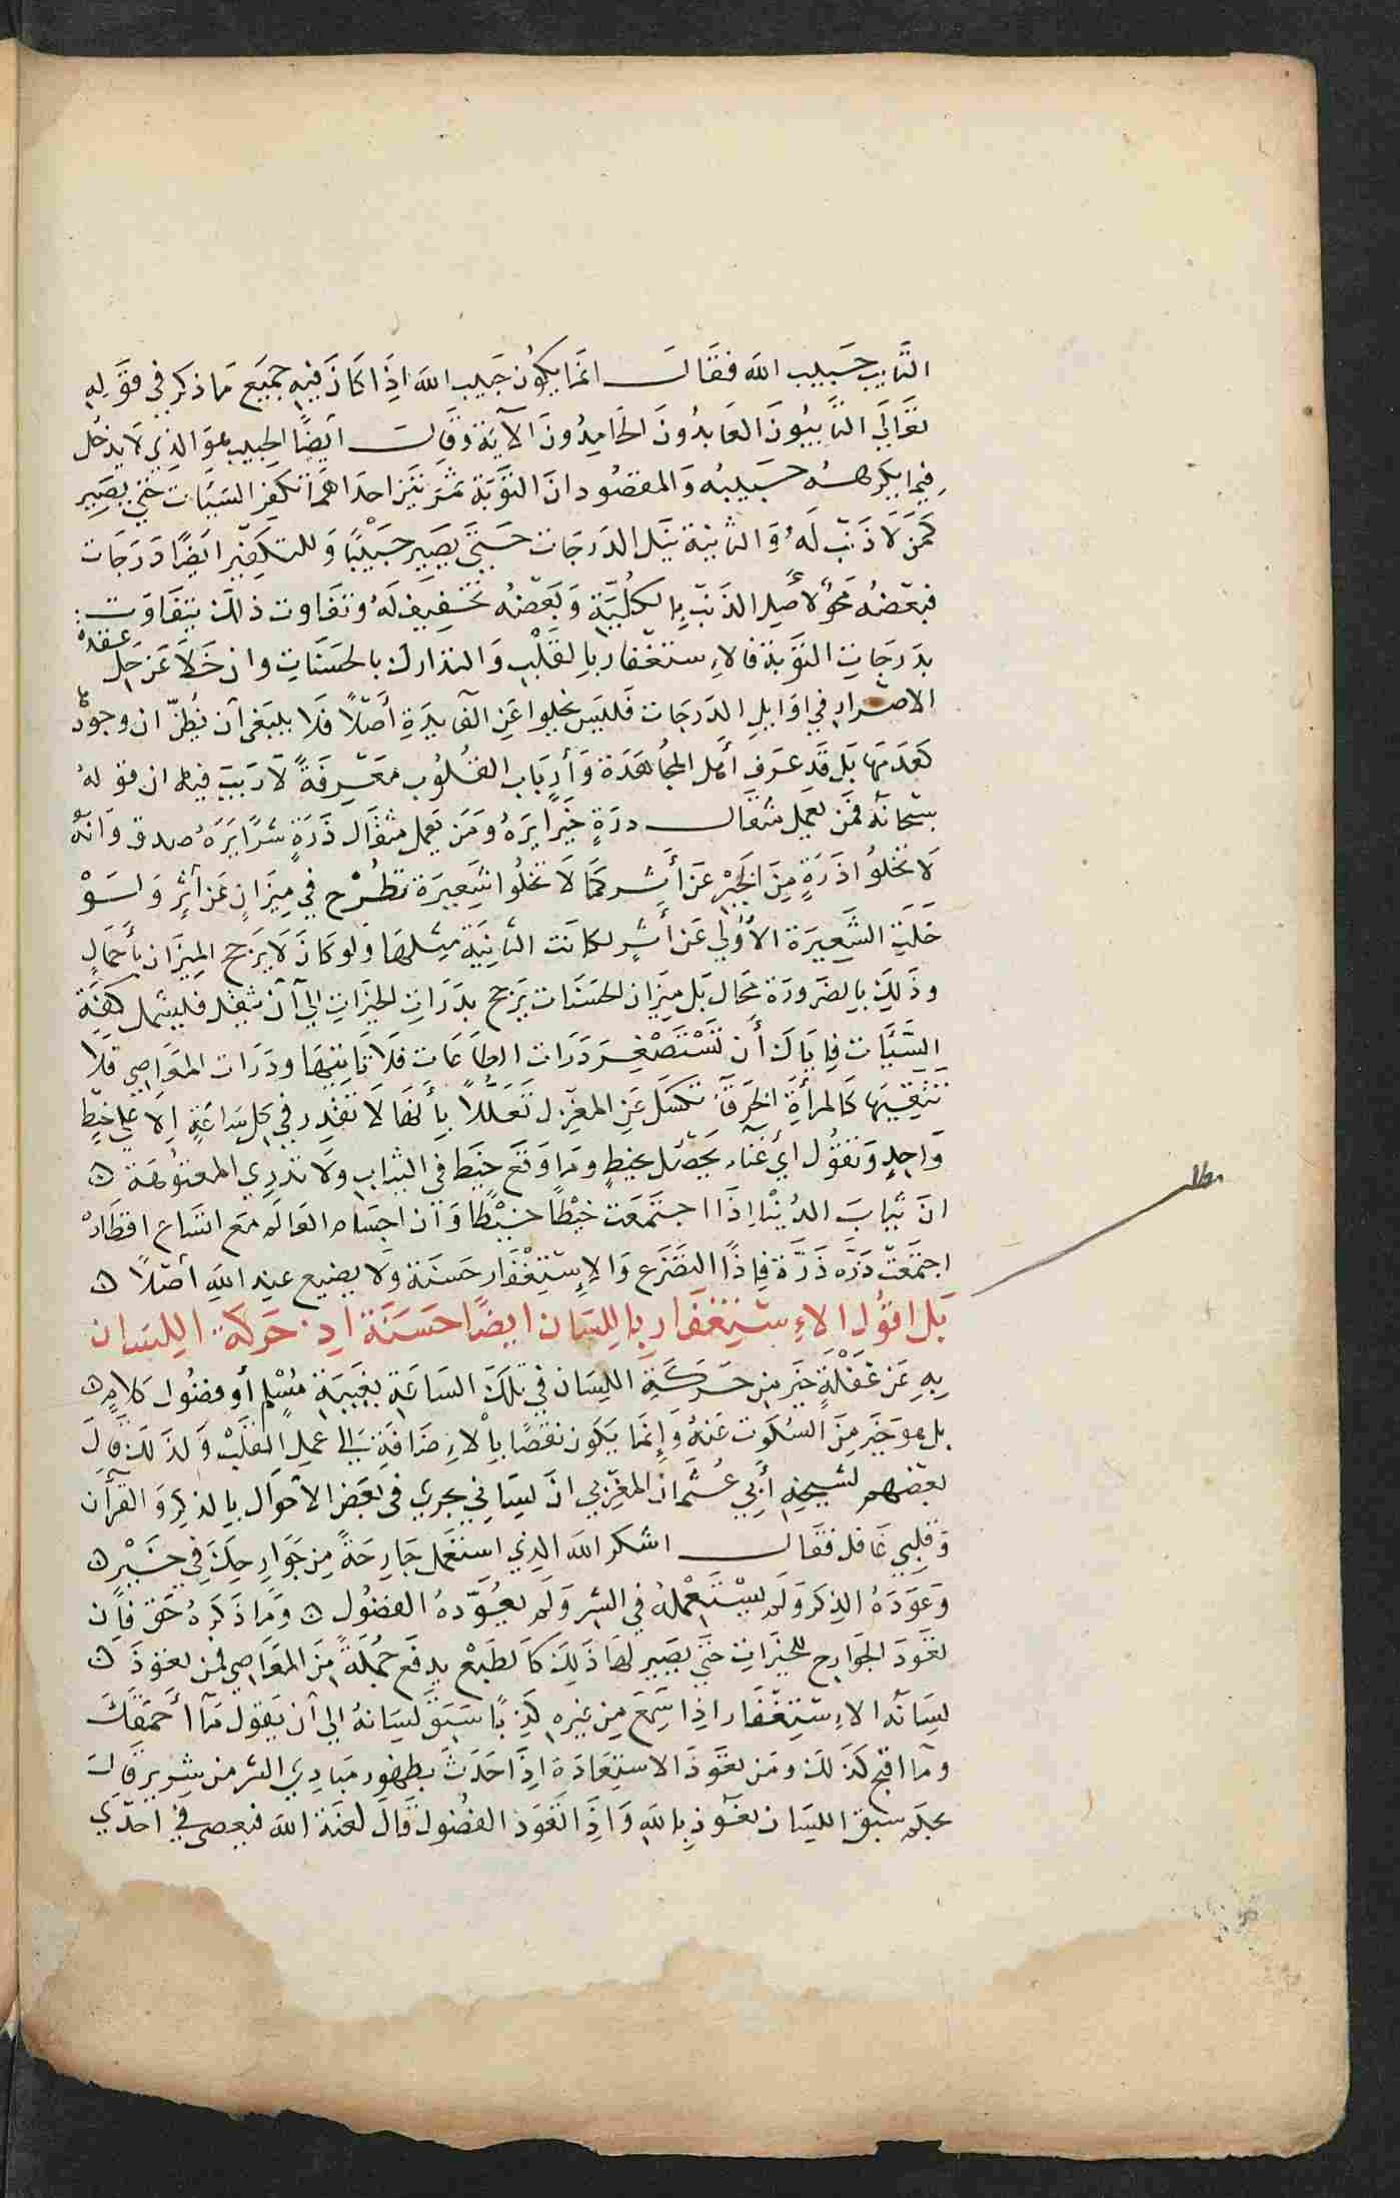 التَّايب حَبيب الله فقال انما يكون حَبيب الله اذا كانَ فيهِ جميع مَا ذكر في قَوله
تعَالَى التَّايبُونَ العَابدُونَ الحَامِدُونَ الآيَة وقالَ ايضًا الحبيب هوَ الذي لا يدْخُل
فيما يكرهُهُ حَبيبُه وَالمقصُود انَ التوَّبَة ثمرَتيْن احدَاهمَا تكفير السَّيَّات حَتي يصِير
كمَن لا ذَنبَ لَهُ وَ الثانية نَيل الدرَجَات حَتي يَصير حَبيْبًا وَ للتكفير ايضًا دَرَجَات
فبَعضهُ مَحوٌ لأَصِل الذنب بِالكُلّيَةِ وَبَعضه تخفيف لَهُ وتفاوت ذلك بتفَاوَت
بدَرجَاتِ التوَبة فالاِستغفار بِالقَلْبِ وَالتدارك بالحسَنَاتِ وان خَلاَ عَن حَل عقدة
الاصرَارِ في اوَايل الدرَجات فَليس يخلوا عَنِ الفايدَةِ أصلاً فَلا يَنبغى أن يظنّ ان وجودها
كَعَدَمهَا بَل قَد عرَف أهل المجَاهَدَة وَأربَاب القلُوب مَعرِفَةً لا رَيبَ فيه ان قوله
سبحَانَه فمَن يعمل مثقال ذرةٍ خَيرًا يرَهُ وَمَن يَعمل مثقَال ذَرّةٍ شرًا يَرَهُ صدق وَانه
لا تخلوُا ذَرَةٍ مِنَ الخَيْرِ عَن أثر كمَا لا تخلُوا شَعِيرَة تطْرَح في مِيزَانٍ عَن أثرٍ وَلَوْ
خَلَتِ الشَّعِيرَة الأُوْلي عَن أثرٍ لكانت الثانِيَة مثلهَا وَلو كانَ لا يَرجح المِيزَان بأحمَالٍ
وذَلِكَ بالضرورَة مُحَال بَل مِيزَان الحسَنَات يَرجح بذَرَاتِ الخيَرَاتِ الي أن يثقل فيشمل كفة
السَّيَّاتِ فاِياك أن تَسْتَصْغِر ذَرَات الطاعَات فلا تَاتيهَا وذرَات المعَاصِي فَلا
تتقيهَا كالمرأةِ الخرقا تكسَل عَن المغزِل تعَلّلاً بأنها لا تقدِر في كل سَاعَةٍ اِلا علي خيْطٍ
وَاحِدٍ وَتقوُل أي غَنَاء يَحصُل بخيطٍ ومَا وَقع خيَط في الثياب ولا تدْري المعتوُهَة
انَ ثيَابَ الدُنْيا اِذَا اجتَمَعت خيْطًا خيْطًا وَان اجسَام العَالم مَع اتسَاع اقطَارهْ
اجتمَعتْ ذَرّة ذَرّة فاِذًا التضَرَّع وَالاِستغْفَار حَسَنة وَلا يضيع عند الله أصْلاً
بَل اقوُل الاِستغفَار بِاللسَان ايضًا حَسَنَة اِذ حَركة اللِسَان
بِهِ عَن غَفْلةٍ خَير مِن حَرَكَةِ اللِسَان في تلكَ السَاعَةِ بغيبَة مُسْلِم أو فضوُل كلامٍ
بل هو خَير مِنَ السُكوت عَنهُ وَاِنما يكون نقصًا بِالاِضَافَةِ الي عمل القلبْ وَلذلكَ قالَ
بعضهم لشيخهِ أبي عثمان المغْرِبي انَ لسَاني يجري في بَعض الأحوَال بِالذِكر وَالقرآن
وَقلبي غَافل فقَال اشكر الله الذي استعمَل جَارِحَةً مِن جَوَارِحِكَ في خَيْرٍ
وَعَوّدهُ الذكرَ وَلم يسْتعْملهُ في الشر وَلم يعُوّدهُ الفضوُل وَمَا ذَكرَهُ حَق فاِن
تعَوّد الجوَارح للخيرَاتِ حَتي يَصير لهَا ذَلِكَ كالطَبع يدفع جُملَةً مِنَ المعَاصِي فمن تعوَّدَ
لسَانهُ الاِستغفَار اذِا سَمعَ مِن غيرِهِ كَذِبًا سَبَقَ لسَانهُ الي أن يَقول مَا أحْمَقكَ
وما اقبح كذبَك ومَن تعَوّدَ الاستِعَاذَة اِذَا حَدَثَ بظهور مَبَادِي الشر مِن شرير قال
بحكم سبق اللِسَان نعوُذ بِاللهِ وَاذَا تعَوّدَ الفضول قالَ لعَنهُ الله فيَعصى في احدي